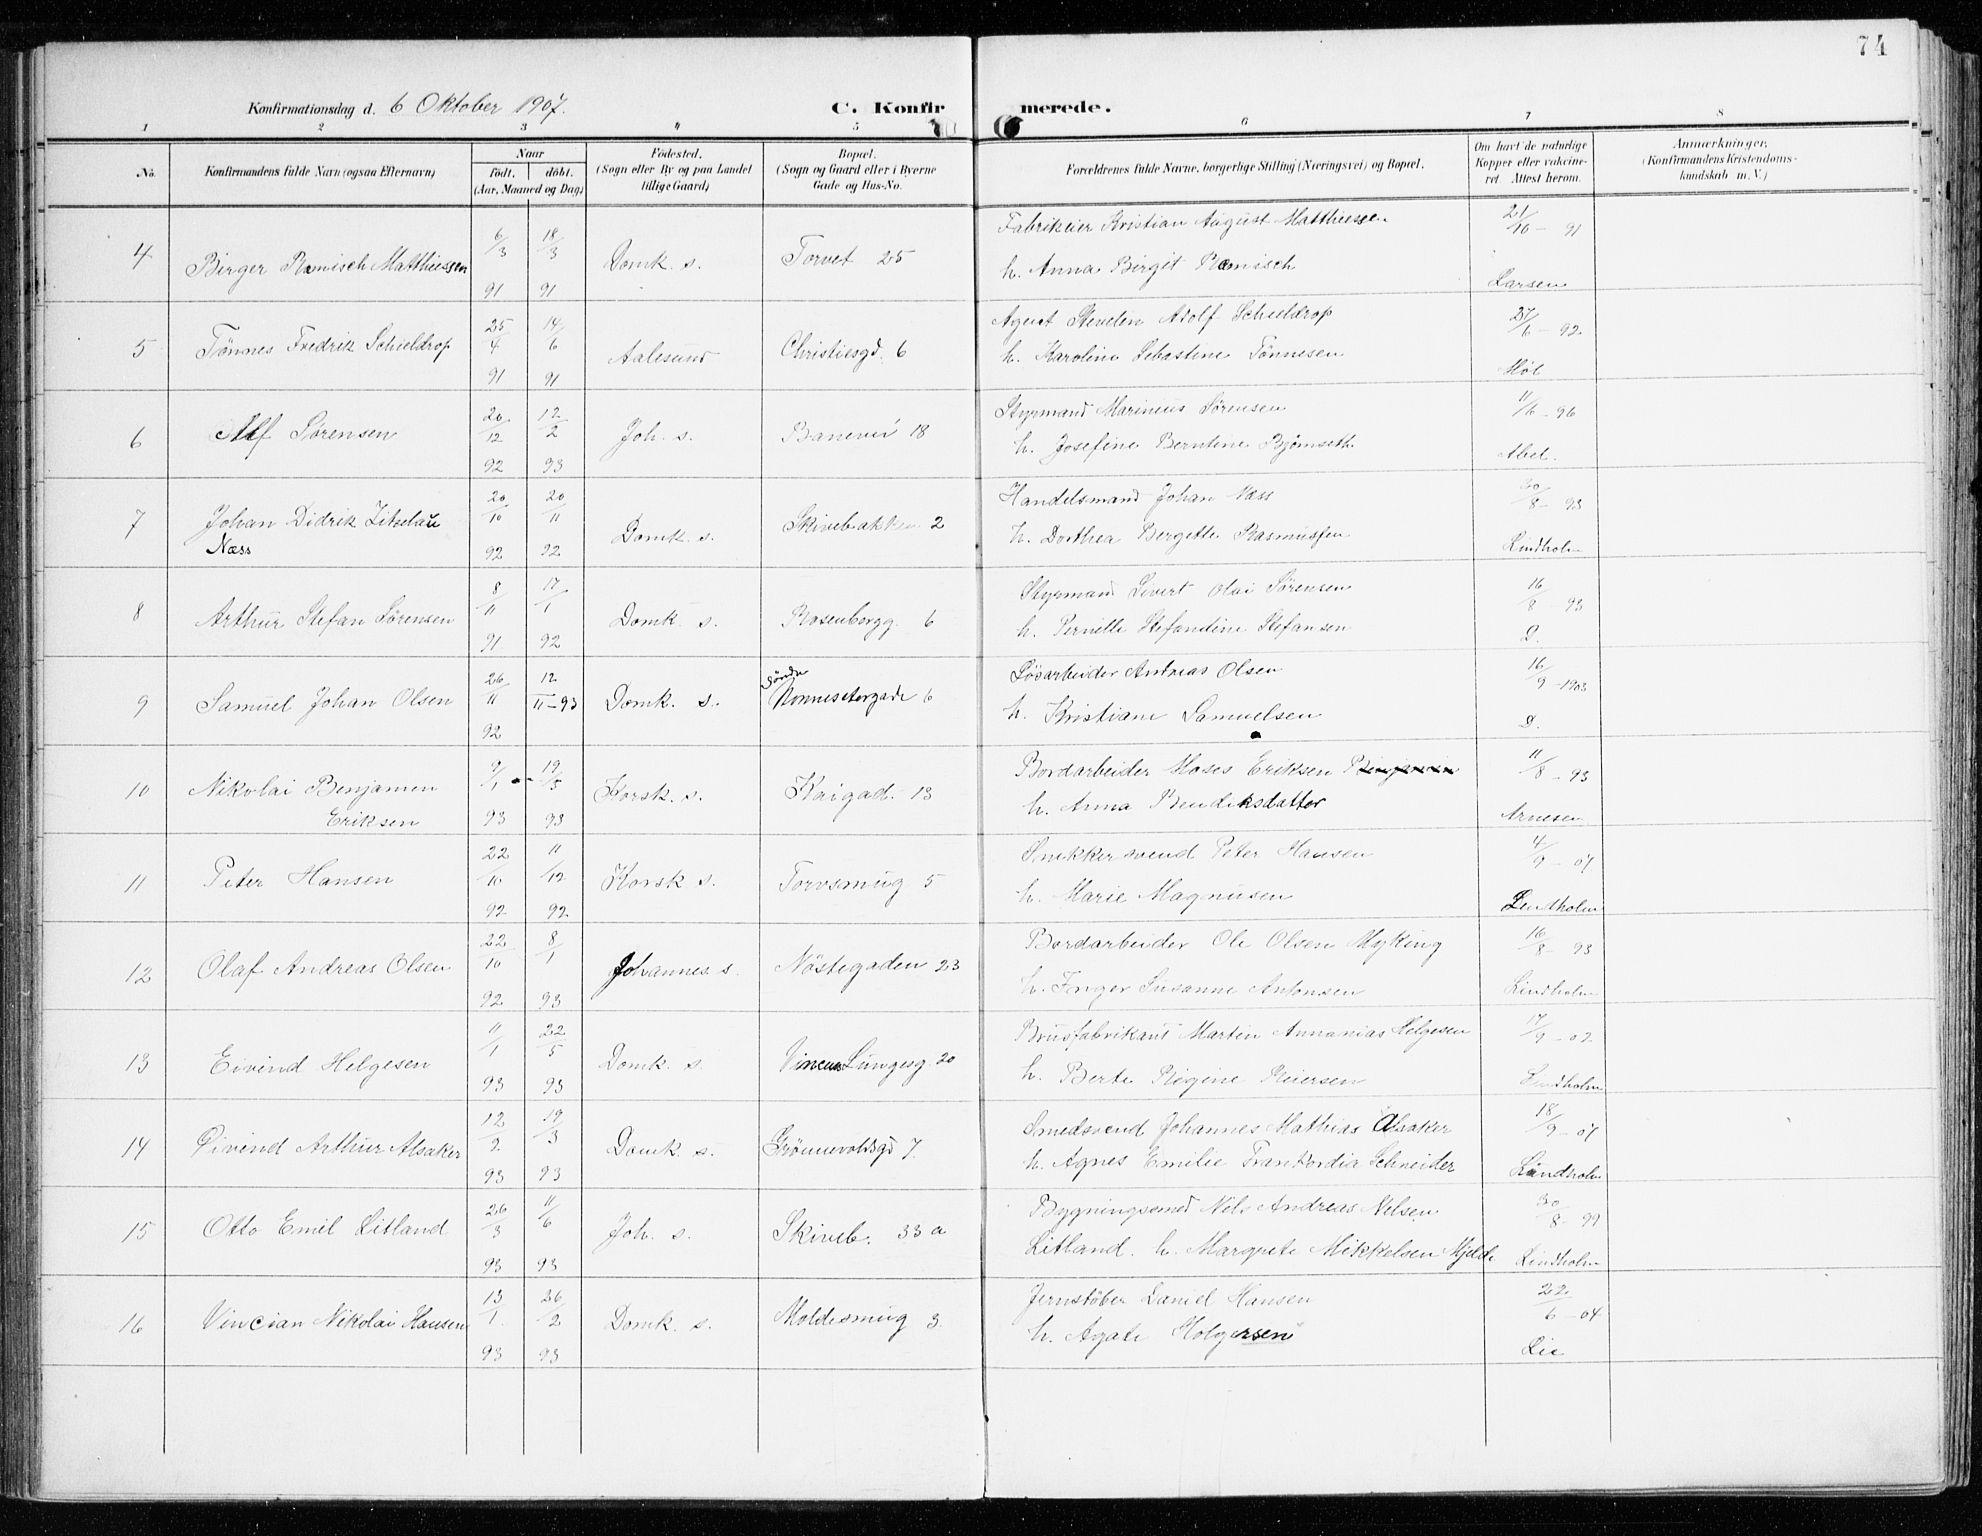 74
Konfirmationsdag d. 6 Oktober 1907.
C. Konfirmerede.
1 2 3 4 5 6 7 8
No. Konfirmandens fulde Navn (ogsaa Efternavn) Naar født. døbt. (Aar, Maaned og Dag) Fødested. (Sogn eller By og paa Landet tillige Gaard) Bopæl. (Sogn og Gaard eller i Byerne Gade og Hus-No. Forældrenes fulde Navne, borgerlige Stilling (Næringsvei) og Bopæl. Om havt de naturlige Kopper eller vakcineret. Attest herom. Anmærkninger. (Konfirmandens Kristendomskundskab m. V.)
4 Birger Rømisch Matthiessen 6/3 91 18/3 91 Domk. s. Torvet 25 Fabrikeier Kristian August Matthiessen 21/10 - 91
h. Anna Birgit Rømisch Larsen
5 Tønnes Fredrik Schieldrop 25/4 91 14/6 91 Aalesund Christiesgd. 6 Agent Stevelen Adolf Schieldrop 27/6 - 92
h. Karoline Sebastine Tønnesen Høl
6 Alf Sørensen 20/12 92 12/2 93 Joh. s. Banevei 18 Styrmand Marineus Sørensen 11/6 - 96
h. Josefine Berntine Bjørnseth Abel.
7 Johan Didrik Zitzelau 20/10 92 20/11 92 Domk. s. Skivebakken 2 Handelsmand Johan Næss 30/8 - 93
Næss h. Dorthea Bergette Rasmussen Lindholm
8 Arthur Stefan Sørensen 8/11 91 17/1 92 Domk. s. Rosenbergg. 6 Styrmand Sivert Olai Sørensen 16/8 - 93
h. Pernille Stefandine Stefansen D.
9 Samuel Johan Olsen 26/11 92 12/II - 93 Domk. s. Søndre Nonnesetergade 6 Løsarbeider Andreas Olsen 16/9 - 1903
h. Kristiane Samuelsen D.
10 Nikolai Benjamen 9/1 93 19/3 93 Korsk. s. Kaigad. 13 Bordarbeider Moses Eriksen 11/8 - 93
Eriksen h. Anna Bendiksdatter Arnesen
11 Peter Hansen 22/10 92 11/12 92 Korsk s. Torvsmug 5 Snekkersvend Peter Hansen 4/9 - 07
h. Marie Magnusen Lindholm
12 Olaf Andreas Olsen 22/10 92 8/1 93 Johannes s. Nøstegaden 23 Bordarbeider Ole Olsen Myking 16/8 - 93
h. Inger Susanne Antonsen Lindholm
13 Eivind Helgesen 11/1 93 22/5 93 Domk. s. Vincens Lungesg 20 Brusfabrikant Martin Annanias Helgesen 17/9 - 02
h. Berte Regine Reiersen Lindholm
14 Øivind Arthur Alsaker 12/2 93 19/3 93 Domk. s. Grønnevoldsgd 7. Smedsvend Johannes Mathias Alsaker 18/9 - 07
h. Agnes Emilie Schneider Lindholm
15 Otto Emil Litland 26/3 93 11/6 93 Joh. s. Skiveb. 33 a Bygningssmed Nels Andreas Nelsen 30/8 - 99
Litland. h. Margrete Mikkelsen Mjelde Lindholm
16 Vincian Nikolai Hansen 13/1 93 26/2 93 Domk. s. Moldesmug 3. Jernstøber Daniel Hansen 22/6 - 04
h. Agate Holgersen Lie